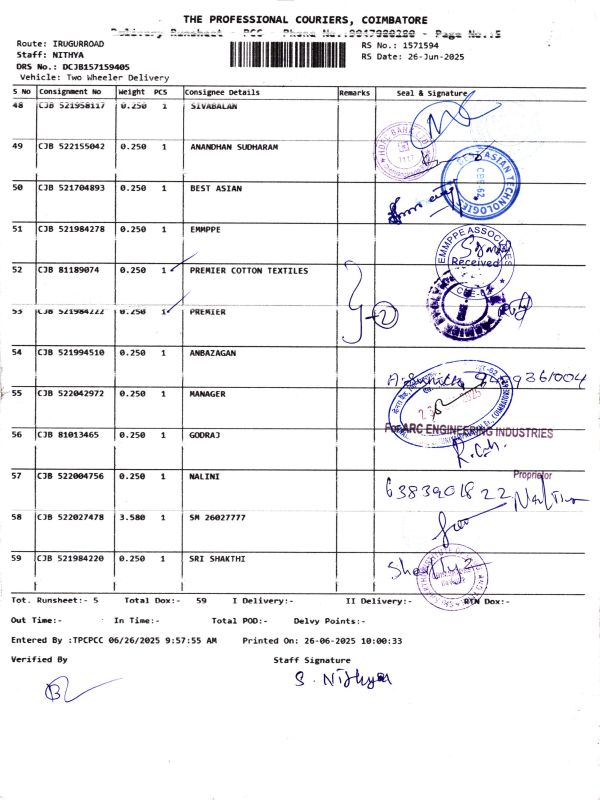 THE PROFESSIONAL COURIERS, COIMBATORE
Delivery Runsheet - PCC - Phone No.: - Page No.:5
Route: IRUGURROAD
RS No.: 1571594
Staff: NITHYA
RS Date: 26-Jun-2025
DRS No.: DCJB157159405
Vehicle: Two Wheeler Delivery
S No Consignment No Weight PCS Consignee Details Remarks Seal & Signature
48 CJB 521958117 0.250 1 SIVABALAN
49 CJB 522155042 0.250 1 ANANDHAN SUDHARAM
50 CJB 521704893 0.250 1 BEST ASIAN
BEST ASIAN TECHNOLOGIES
51 CJB 521984278 0.250 1 EMMPPE
EMMPPE ASSOCIATES
Received
52 CJB 81189074 0.250 1 PREMIER COTTON TEXTILES
53 CJB 521984222 0.250 1 PREMIER
2
54 CJB 521994510 0.250 1 ANBAZAGAN
55 CJB 522042972 0.250 1 MANAGER
56 CJB 81013465 0.250 1 GODRAJ
For ARC ENGINEERING INDUSTRIES
Proprietor
57 CJB 522004756 0.250 1 NALINI
6383901822
58 CJB 522027478 3.580 1 SM 26027777
59 CJB 521984220 0.250 1 SRI SHAKTHI
Tot. Runsheet:- 5 Total Dox:- 59 I Delivery:- II Delivery:- RTN Dox:-
Out Time:- In Time:- Total POD:- Delvy Points:-
Entered By :TPCPCC 06/26/2025 9:57:55 AM Printed On: 26-06-2025 10:00:33
Verified By Staff Signature
S. Nithya